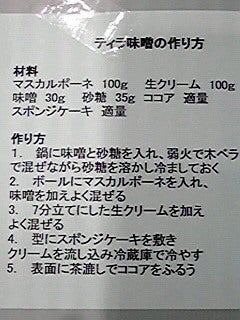 ティラ味噌の作り方
材料
マスカルポーネ 100g 生クリーム 100g
味噌 30g 砂糖 35g ココア 適量
スポンジケーキ 適量
作り方
1. 鍋に味噌と砂糖を入れ、弱火で木ベラ
で混ぜながら砂糖を溶かし冷ましておく
2. ボールにマスカルポーネを入れ、
味噌を加えよく混ぜる
3. 7分立てにした生クリームを加え
よく混ぜる
4. 型にスポンジケーキを敷き
クリームを流し込み冷蔵庫で冷やす
5. 表面に茶漉しでココアをふるう